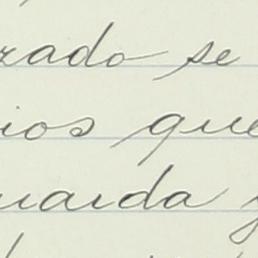 rado se
ios que
uarda y